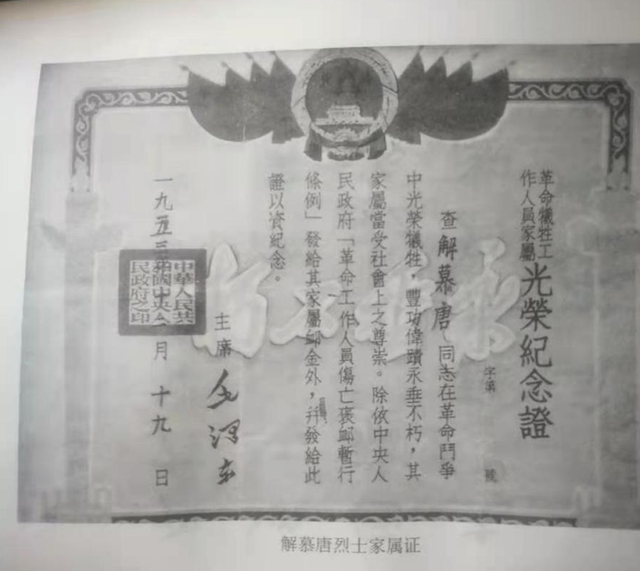 革命犧牲工
作人員家屬
光榮紀念證
字第 號
查解慕唐同志在革命鬥爭
中光榮犧牲，豐功偉蹟永垂不朽，其
家屬當受社會上之尊崇。除依中央人
民政府「革命工作人員傷亡褒卹暫行
條例」發給其家屬卹金外，并發給此
證以資紀念。
永垂不朽
主席 毛澤東
一九五三 月十九日
中華人民共
和國中央人
民政府之印
解慕唐烈士家属证